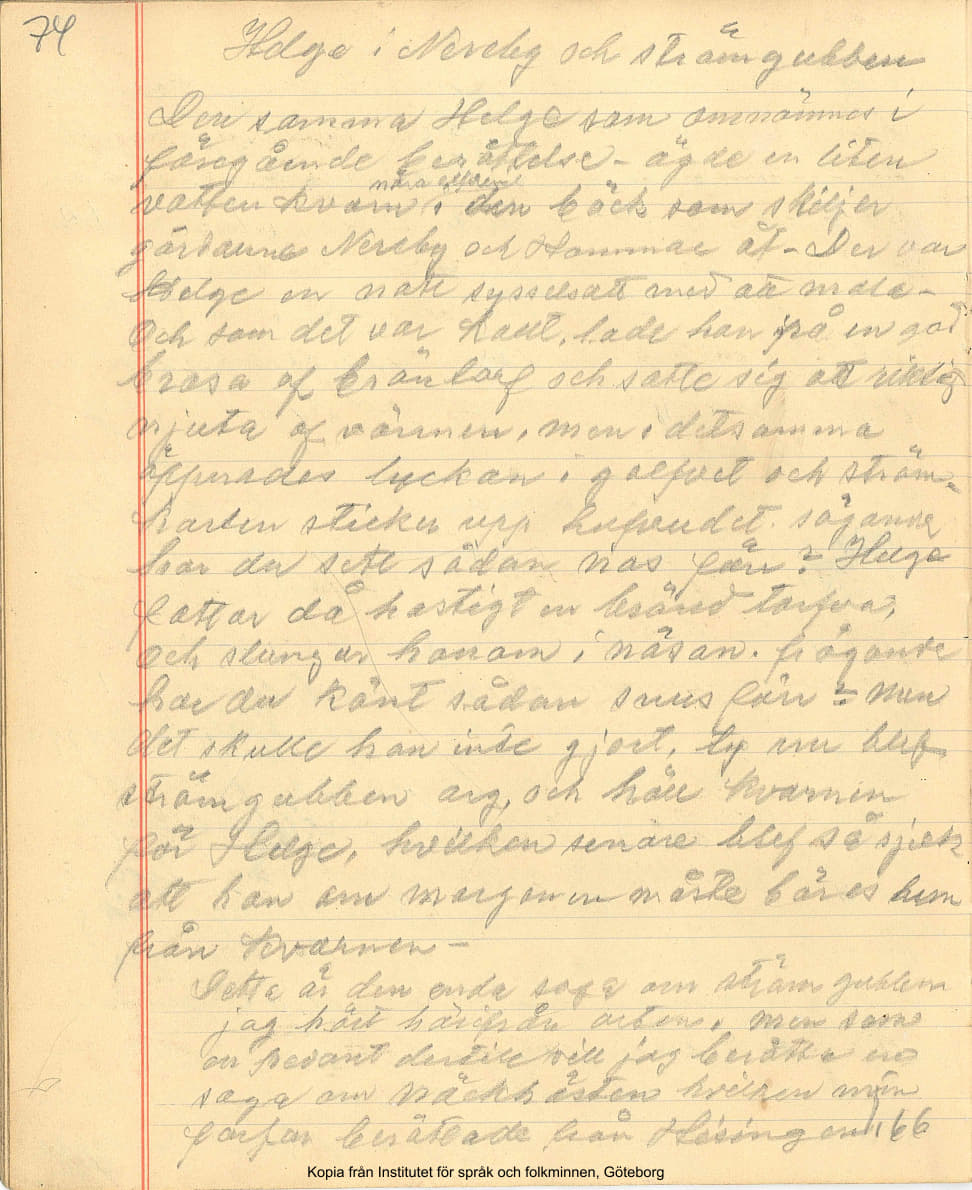 74
Helge i Nereby och strömgubben
Den samma Helge som omnämnes i
föregående berättelse – ägde en liten
nära elfven
vatten kvarn i den bäck som skiljer
gårdarne Nereby och Hammar åt – Der var
Helge en natt sysselsatt med att mala –
Och som det var kallt, lade han på en god
brasa af bränborf och satte sig att riktigt
njuta af värmen, men i detsamma
öppnades luckan i golfvet och ström-
karlen sticker upp hufvudet. säjande
har du sett sådan nos förr? Helge
fattar då hastigt en bränd torfva,
och slungar honom i näsan. frågande
har du känt sådan snus förr? Men
det skulle han inte gjort, ty nu blef
strömgubben arg, och höll kvarnen
för Helge, hvilken senare blef så sjuk
att han om morgonen måste bäras hem
från kvarnen –
Detta är den enda saga om strömgubben
jag hört härifrån orten, men som
en pedant dertill vill jag berätta en
saga om näckhästen hvilken min
farfar berättade från Hisingen, 66
Kopia från Institutet för språk och folkminnen, Göteborg